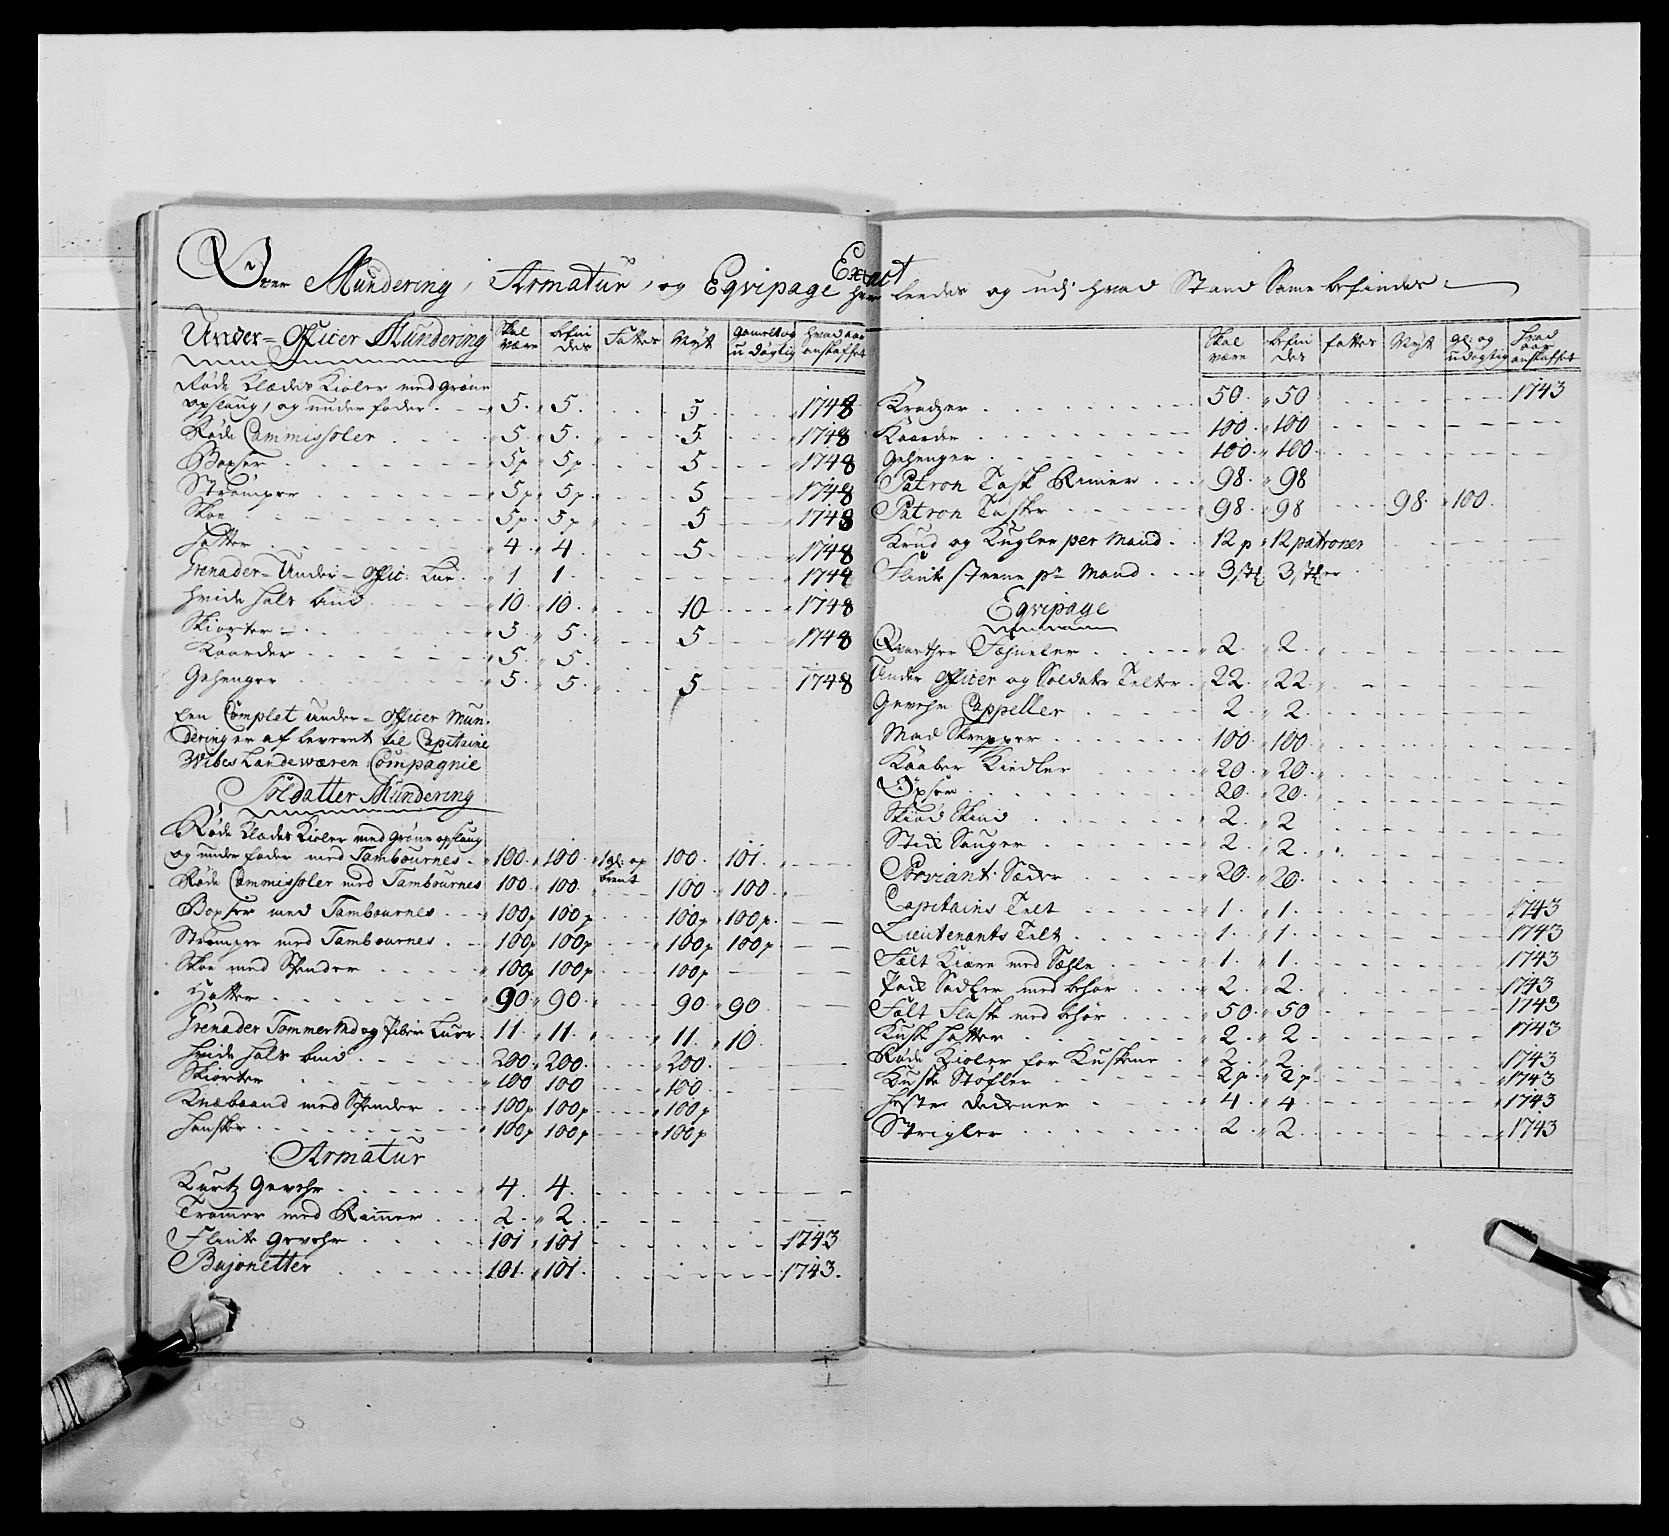 Extract
Over Mundering, Armatur, og Eqvipage hvorledes og udj hvad Stand Samme befindes
Under-Officer Mundering | Skal være | befindes | Fattes | Nyt | Gamelt og udøgtig | hvad aar anskaffet
Røde Klædes Kioler med Grøne
opslaug, og under foder 5. 5. 5 1748
Røde Commissoler 5. 5. 5 1748
Boxser 5p 5p 5 1748
Strømper 5p 5p 5 1748
Skoe 5p 5p 5 1748
Hatter 4. 4. 5 1748
Grenader-Under-Offic: Lue 1 1. 1748
Hvide hals bind 10. 10. 10 1748
Skiorter 5. 5. 5 1748
Kaarder 5. 5.
Gehenger 5. 5. 5 1748
Een Complet under-Officer Mun-
dering er af leveret til Capitaine
Wibes Landeværen Compagnie
Soldatter Mundering
Røde Klædes Kioler med Grøne opslaug
og under foder med Tambournes 100. 100. 1 gl: op brent 100. 101.
Røde Commissoler med Tambournes 100. 100. 100 100.
Boxser med Tambournes 100p 100p 100p 100p.
Strømper med Tambournes 100p 100p 100p 100p
Skoe med Spender 100p 100p 100p
Hatter 90. 90. 90. 90
Grenader Tommermd og Luer 11. 11. 11. 10.
Hvide hals bind 200. 200. 200.
Skiorter 100 100 100
Knæbaand med Spender 100p 100p 100p
Handsker 100p 100p 100p
Armatur
Kurtz Gevehr 4. 4.
Trommer med Remmer 2. 2.
Flint Gevehr 101 101 1743
Bajonetter 101. 101. 1743.
Skal være | befindes | fattes | Nyt | gl: og udøgtig | hvad aar anskaffet
Kradzer 50. 50 1743
Kaarder 100. 100
Gehenger 100. 100
Patron Task Remer 98. 98
Patron Tasker 98. 98 98. 100.
Krud og Kugler per Mand 12p 12 patroner
Flint steene pr Mand 3 st 3 st
Eqvipage
Qvarteer Fahneler 2. 2.
Under Officer og Soldater Telter 22. 22.
Gevehr Cappeller 2. 2.
Mad Skrepper 100. 100.
Kaaber Kiedler 20. 20.
Øxser 20. 20.
Skiød Skind 2. 2
Stix Sauger 2. 2.
Proviant Sæder 20. 20.
Capitains Telt 1. 1. 1743
Lieutenants Telt 1. 1. 1743
Felt Kiære med Sæhle 1. 1. 1743
Pach Sadler med behør 2. 2. 1743
Felt Flask med behør 50. 50 1743
Kusk hatter 2. 2 1743
Røde Kioler for Kuskene 2. 2. 1743
Kuske Støfler 2p. 2p. 1743
Heste dechener 4. 4. 1743
Strigler 2. 2. 1743